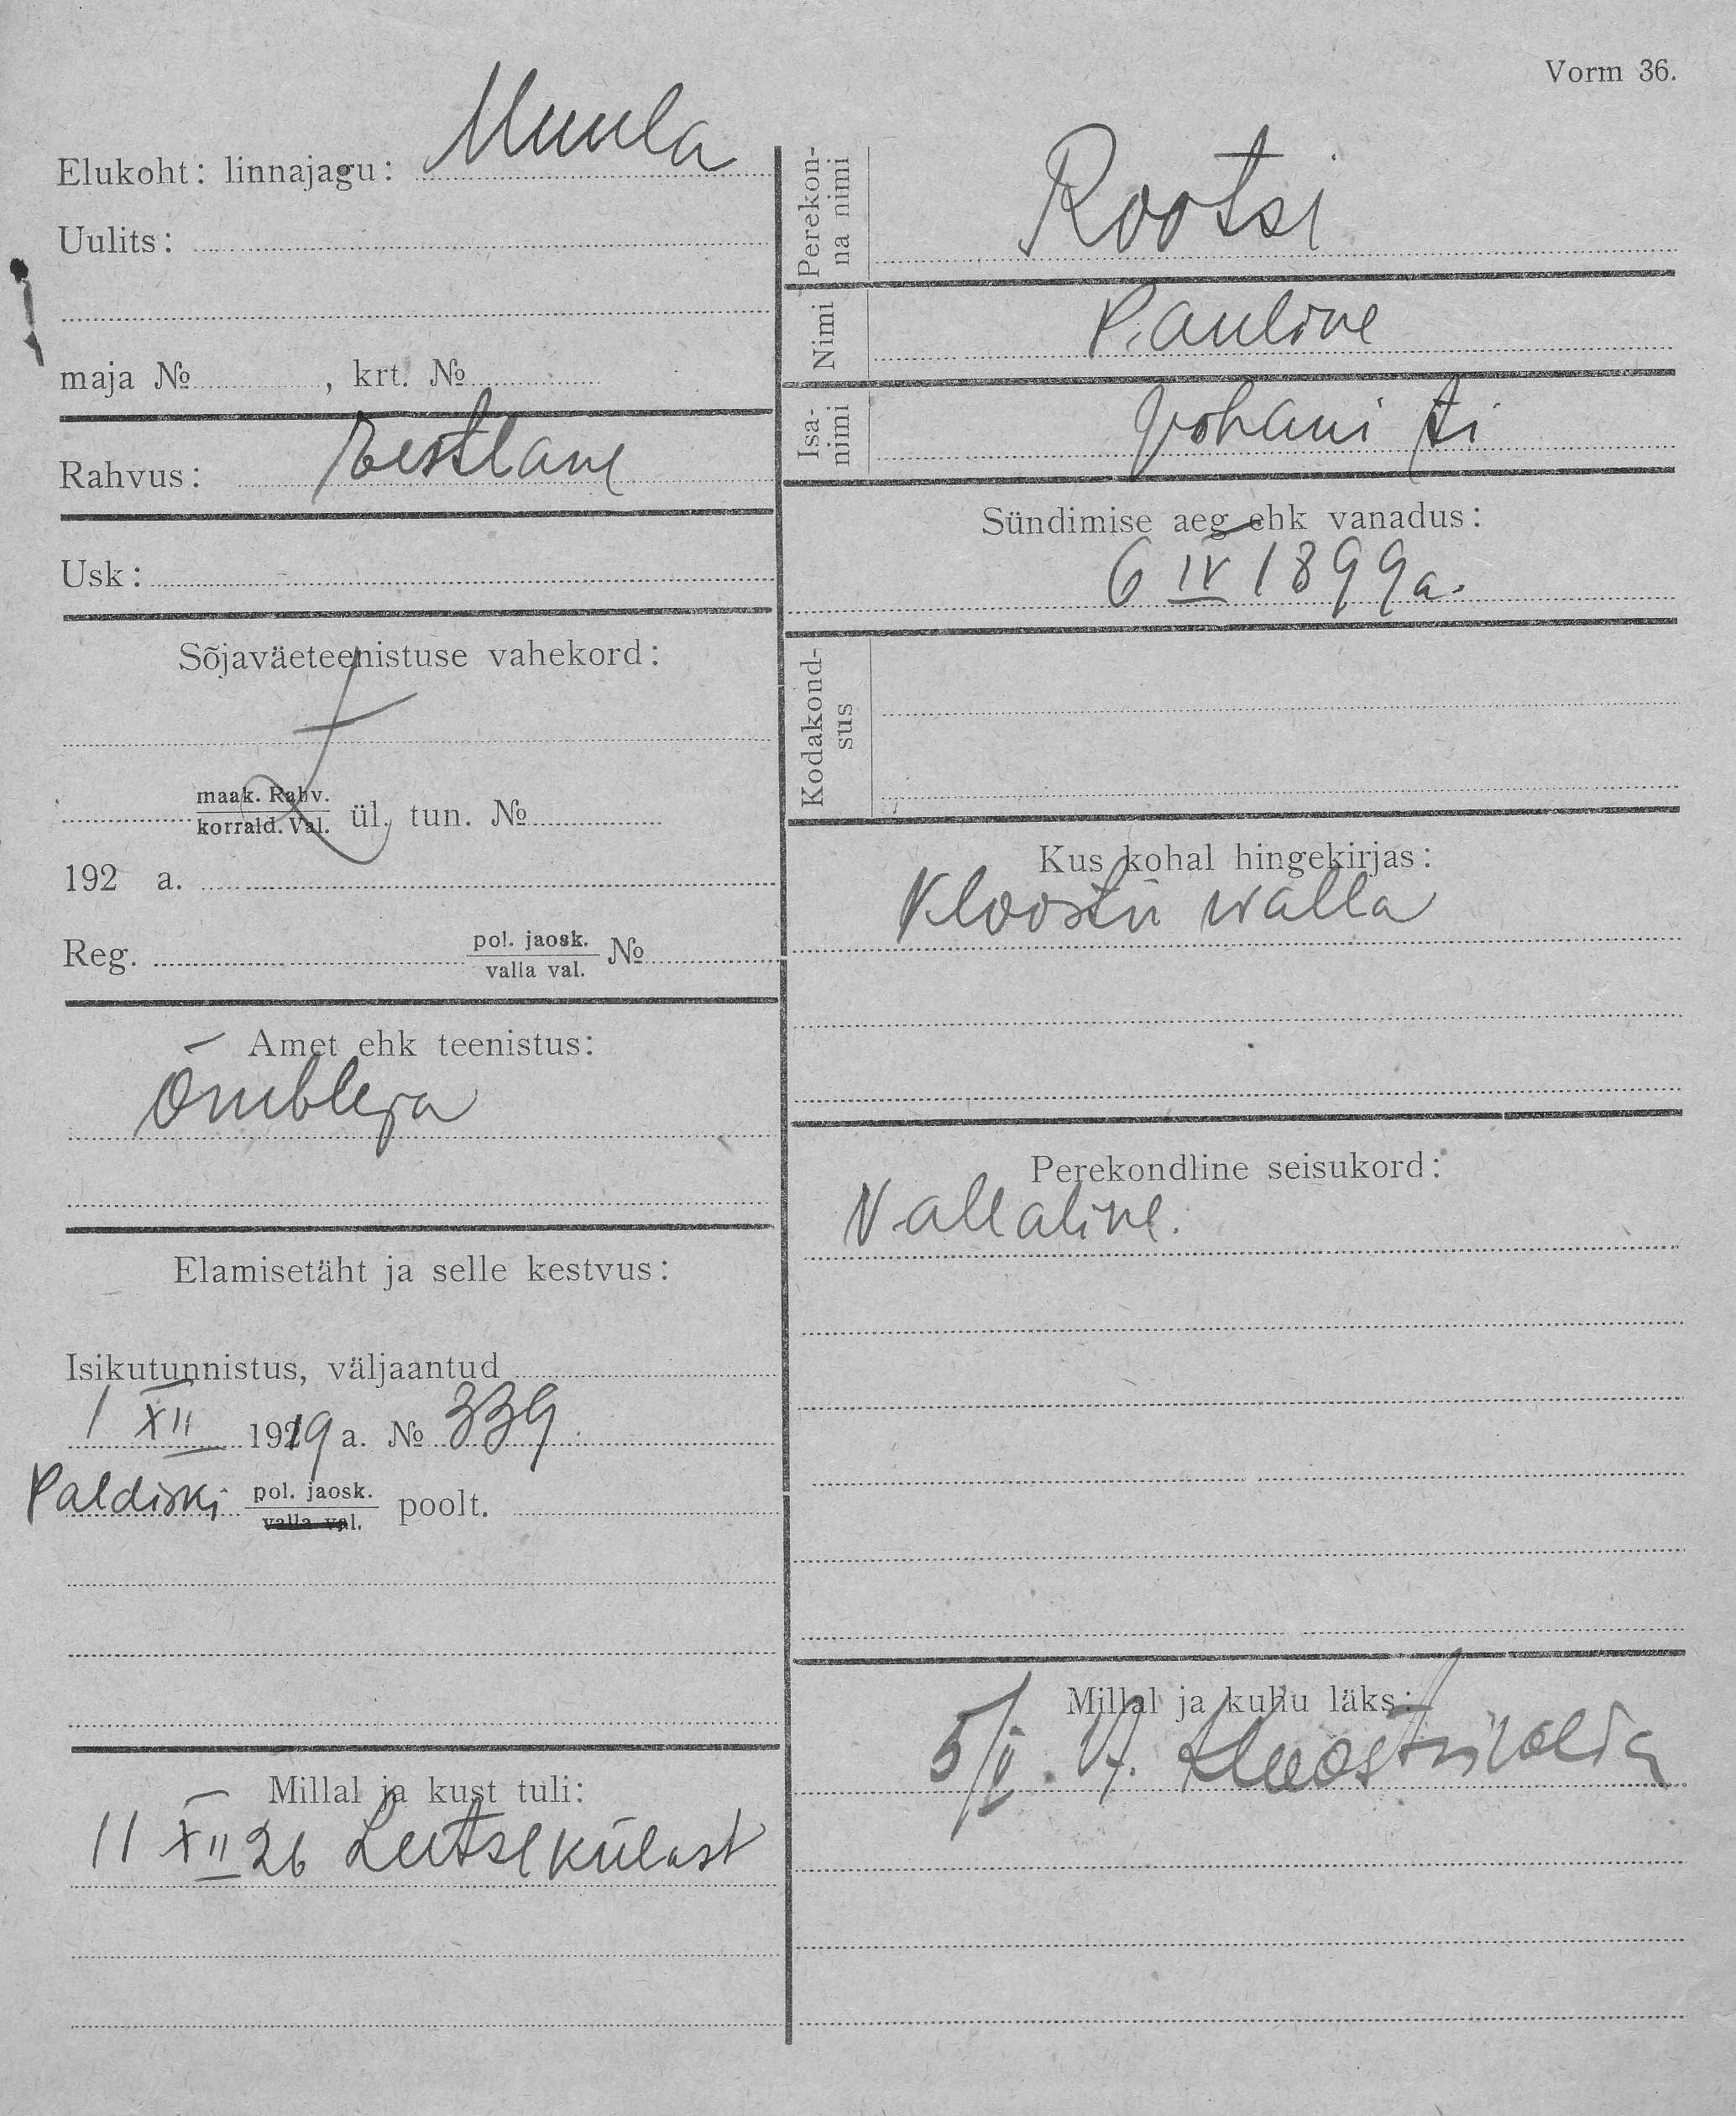 Vorm 36.
Elukoht: linnajagu: Muula
Uulits:
maja № , krt. №
Rahvus: Eestlane
Usk:
Sõjaväeteenistuse vahekord:
maak. Rahv.
korrald. Val. ül. tun. №
192 a.
Reg. pol. jaosk. №
valla val.
Amet ehk teenistus:
Õmbleja
Elamisetäht ja selle kestvus:
Isikutunnistus, väljaantud
1 XII 1919 a. № 339
Paldiski pol. jaosk. poolt.
valla val.
Millal ja kust tuli:
11 XII 26 Leetse külast
Perekon-
na nimi
Rootsi
Nimi
Pauline
Isa-
nimi
Johani ti
Sündimise aeg ehk vanadus:
6 IV 1899 a.
Kodakond-
sus
Kus kohal hingekirjas:
Kloostri walla
Perekondline seisukord:
Vallaline.
Millal ja kuhu läks:
Kloostri valda